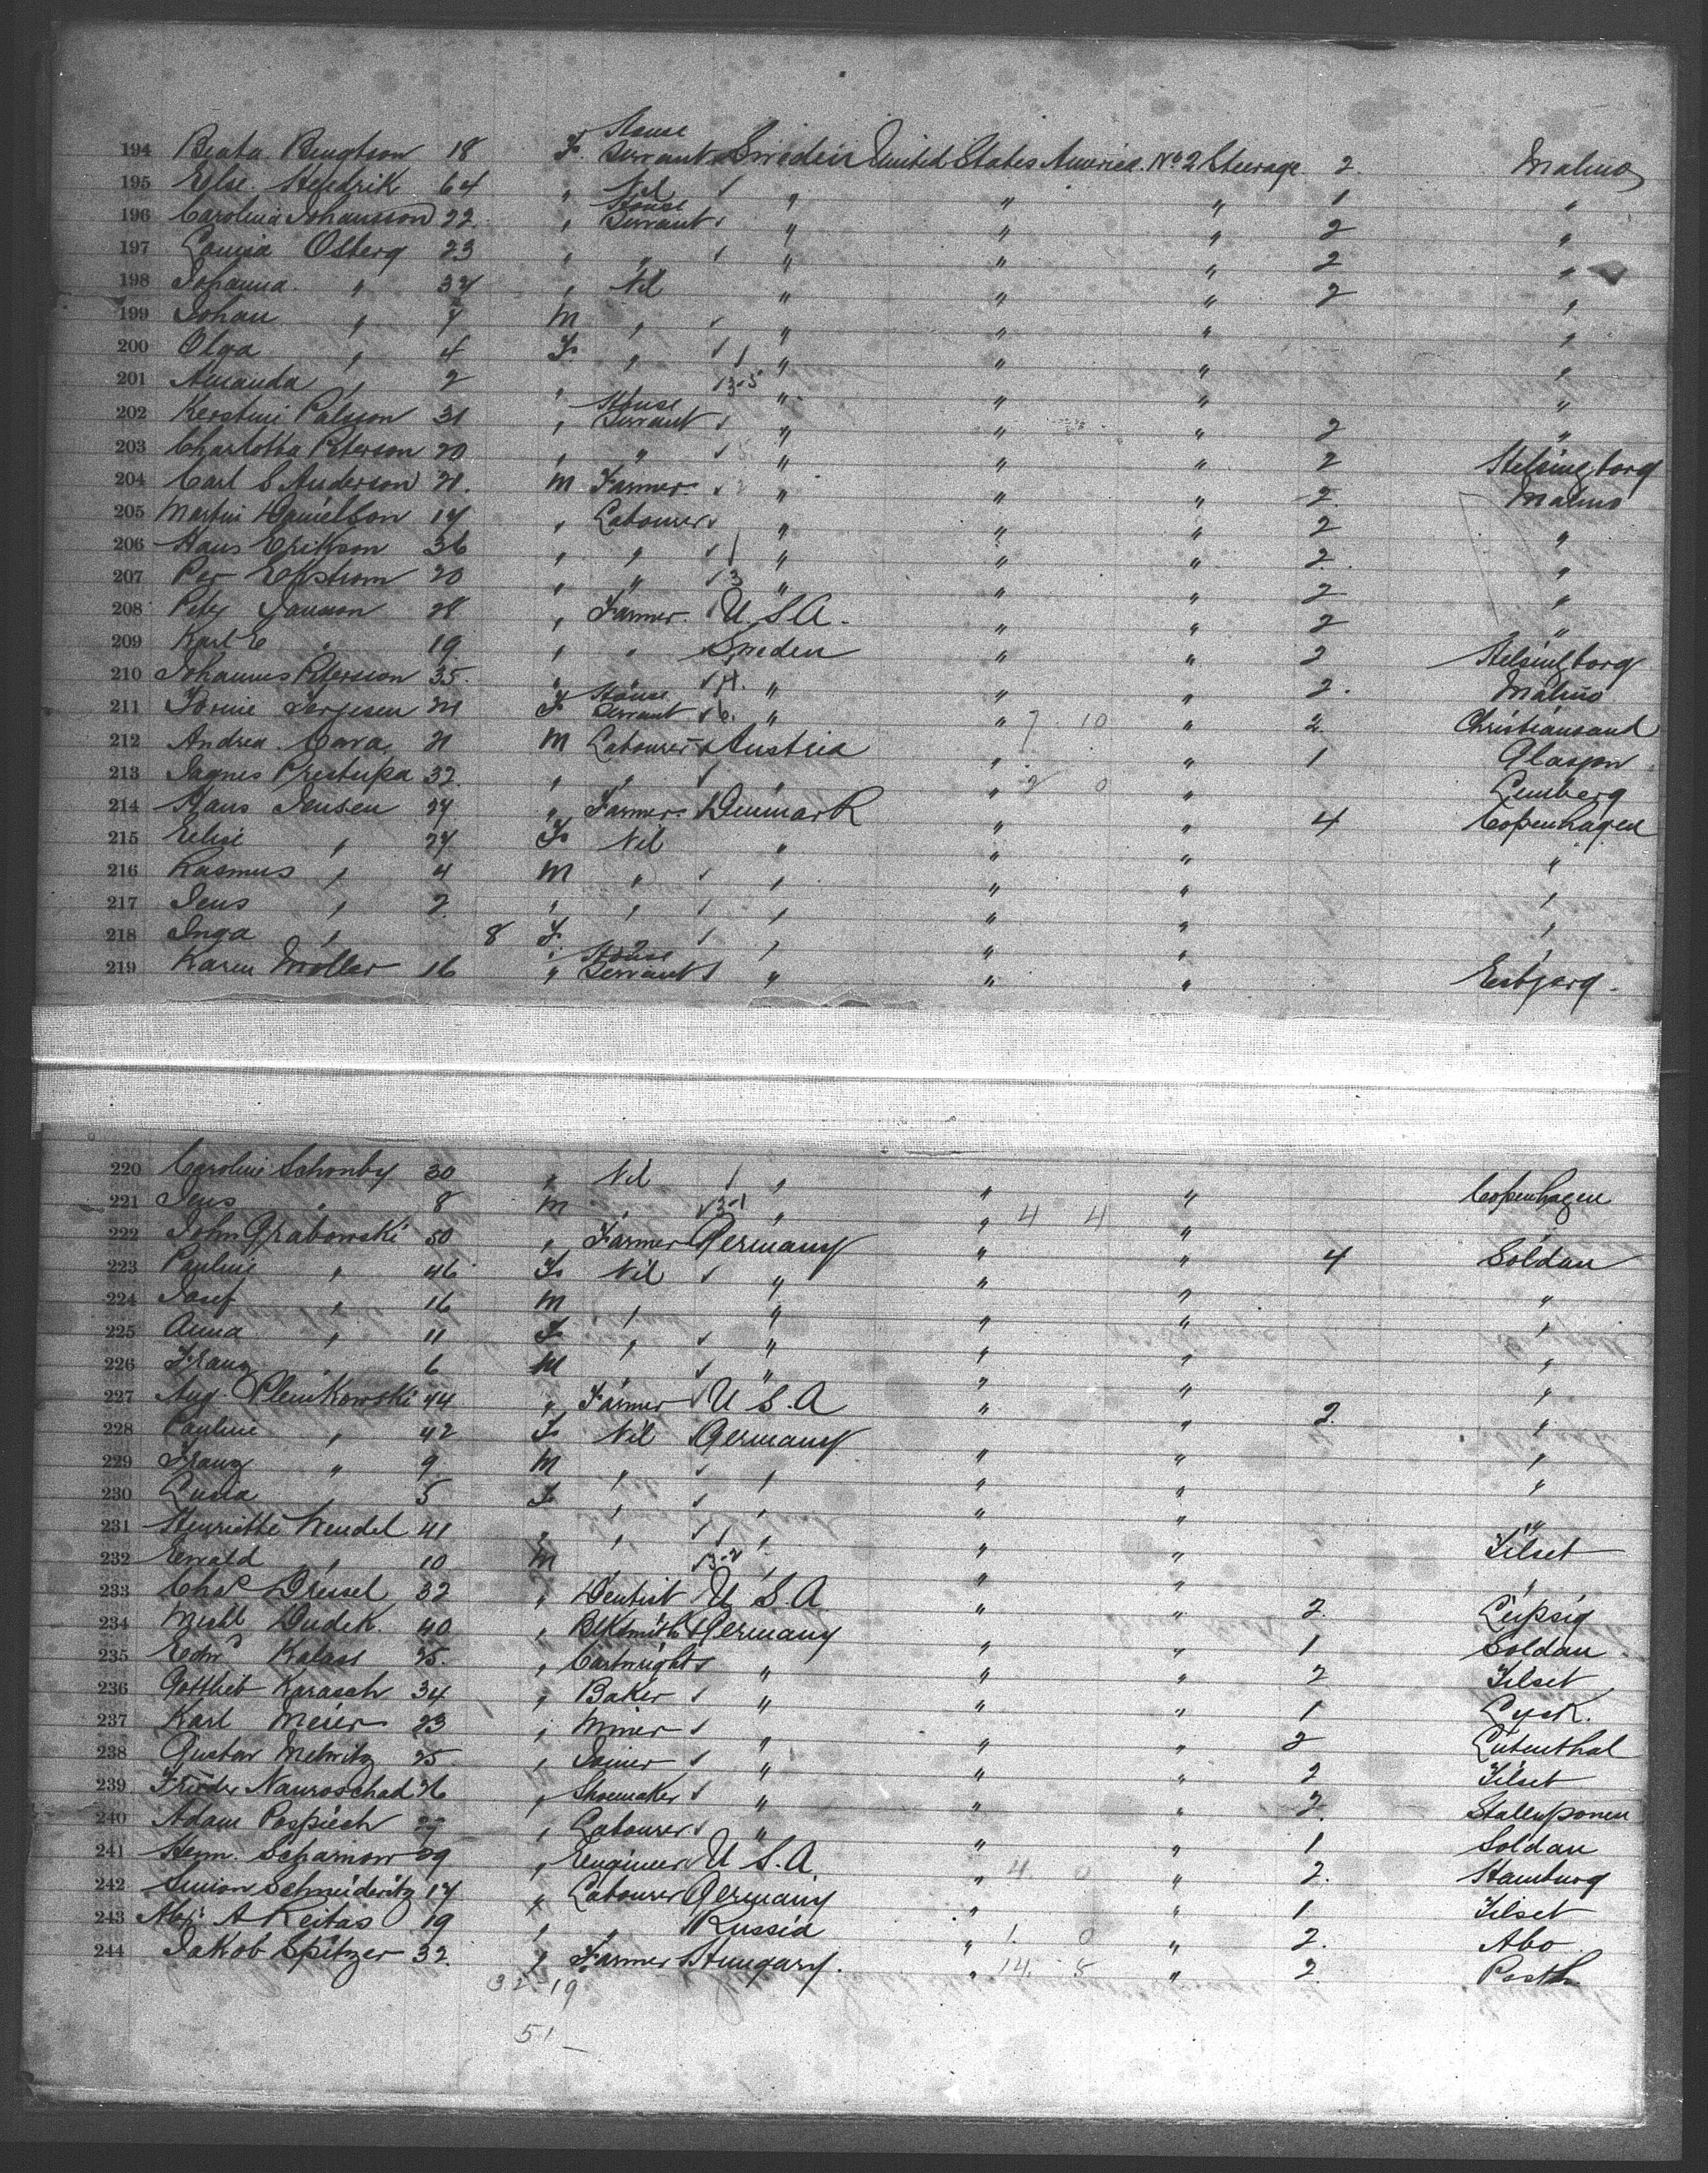 194 Beata Bengtson 18 F. House Servant Sweden United States America. No 2 Steerage. 2. Malmo
195 Else. Hendrik 64 " Nil " " " 1 "
196 Carolina Johansson 22. " House Servant " " " 2 "
197 Osberg 23 " " " " " 2 "
198 Johanna " 37 " Nil " " " 2 "
199 Johan " 7 M " " " " "
200 Olga " 4 F. " " " " "
201 Amanda " 2 " 13-5 " " " "
202 Kerstine Palsson 31 " House Servant " " " 2 "
203 Charlotta Peterson 20 " " " " " 2 Helsingborg
204 Carl S Anderson 21. M Farmer " " " 2. Malmo
205 Martin Danielson 17 " Labourer " " " 2 "
206 Hans Erikson 36 " " " " " 2. "
207 Per Ekstrom 20 " " 3 " " " 2 "
208 Peter Jansson 28 " Farmer. U.S.A. " " 2 "
209 Karl E " 19 " " Sweden " " 2 Helsingborg
210 Johannes Peterson 35. " " 14. " " " 2. Malmo
211 21 F House Servant 6. " " 7 10 " 2. Christiansand
212 Andrea Cava 21 M Labourer Austria " " 1 Glasgow
213 Prestupa 32. " " " " 2 0 " Lemberg
214 Hans Jensen 27 " Farmer. Denmark " " 4 Copenhagen
215 Elise " 27 F Nil " " " "
216 Rasmus " 4 M " " " " "
217 Jens " 2. " " " " " "
218 Inga " 8 F. " " " " "
219 Karen Moller 16 " House Servant " " " Esbjerg.
220 Caroline Schonby 30 " Nil " " " Copenhagen
221 Jens " 8 M " 13-1 " " 4 4 " "
222 John Grabowski 50 " Farmer Germany " " 4 Soldau
223 Pauline " 46 F Nil " " " "
224 Josef " 16 M " " " " "
225 Anna " 11 F " " " " "
226 Franz 6 M " " " "
227 Aug. Plenikowski 44 " Farmer U.S.A " " 2. "
228 Pauline " 42 F Nil Germany " " "
229 Franz " 9 M " " " " "
230 " 5 F " " " " "
231 Henriette Wendel 41 " " 1 " " " Tilset
232 Ewald " 10 M 13-2 " " " "
233 Chas Dressel 32 " Dentist U.S.A. " " 2. Leipsig
234 Michl Dudek. 40 " Blksmith Germany " " 1 Soldau
235 Edwd Kalass 25. " Cartwright " " " 2 Tilset
236 Gottlieb Karasch 34 " Baker " " " 1 Lyck.
237 Karl Meier 23 " Miner " " " 2 Lutenthal
238 Gustav 25 " Joiner " " " 2 Tilset
239 26 " Shoemaker " " " 2. Stalluponen
240 Adam Pospiech " Labourer " " " 1 Soldau
241 Herm. Scharnow 29 " Engineer U.S.A. " 4. 0 " 2. Hamburg
242 Simon Schneideritz 17 " Labourer Germany " " 1 Tilset
243 A Keitas 19 " " Russia " 1. 0 " 2. Abo
244 Jakob Spitzer 32. " Farmer Hungary. " 14. 8 " 2. Pesth
32 19
51